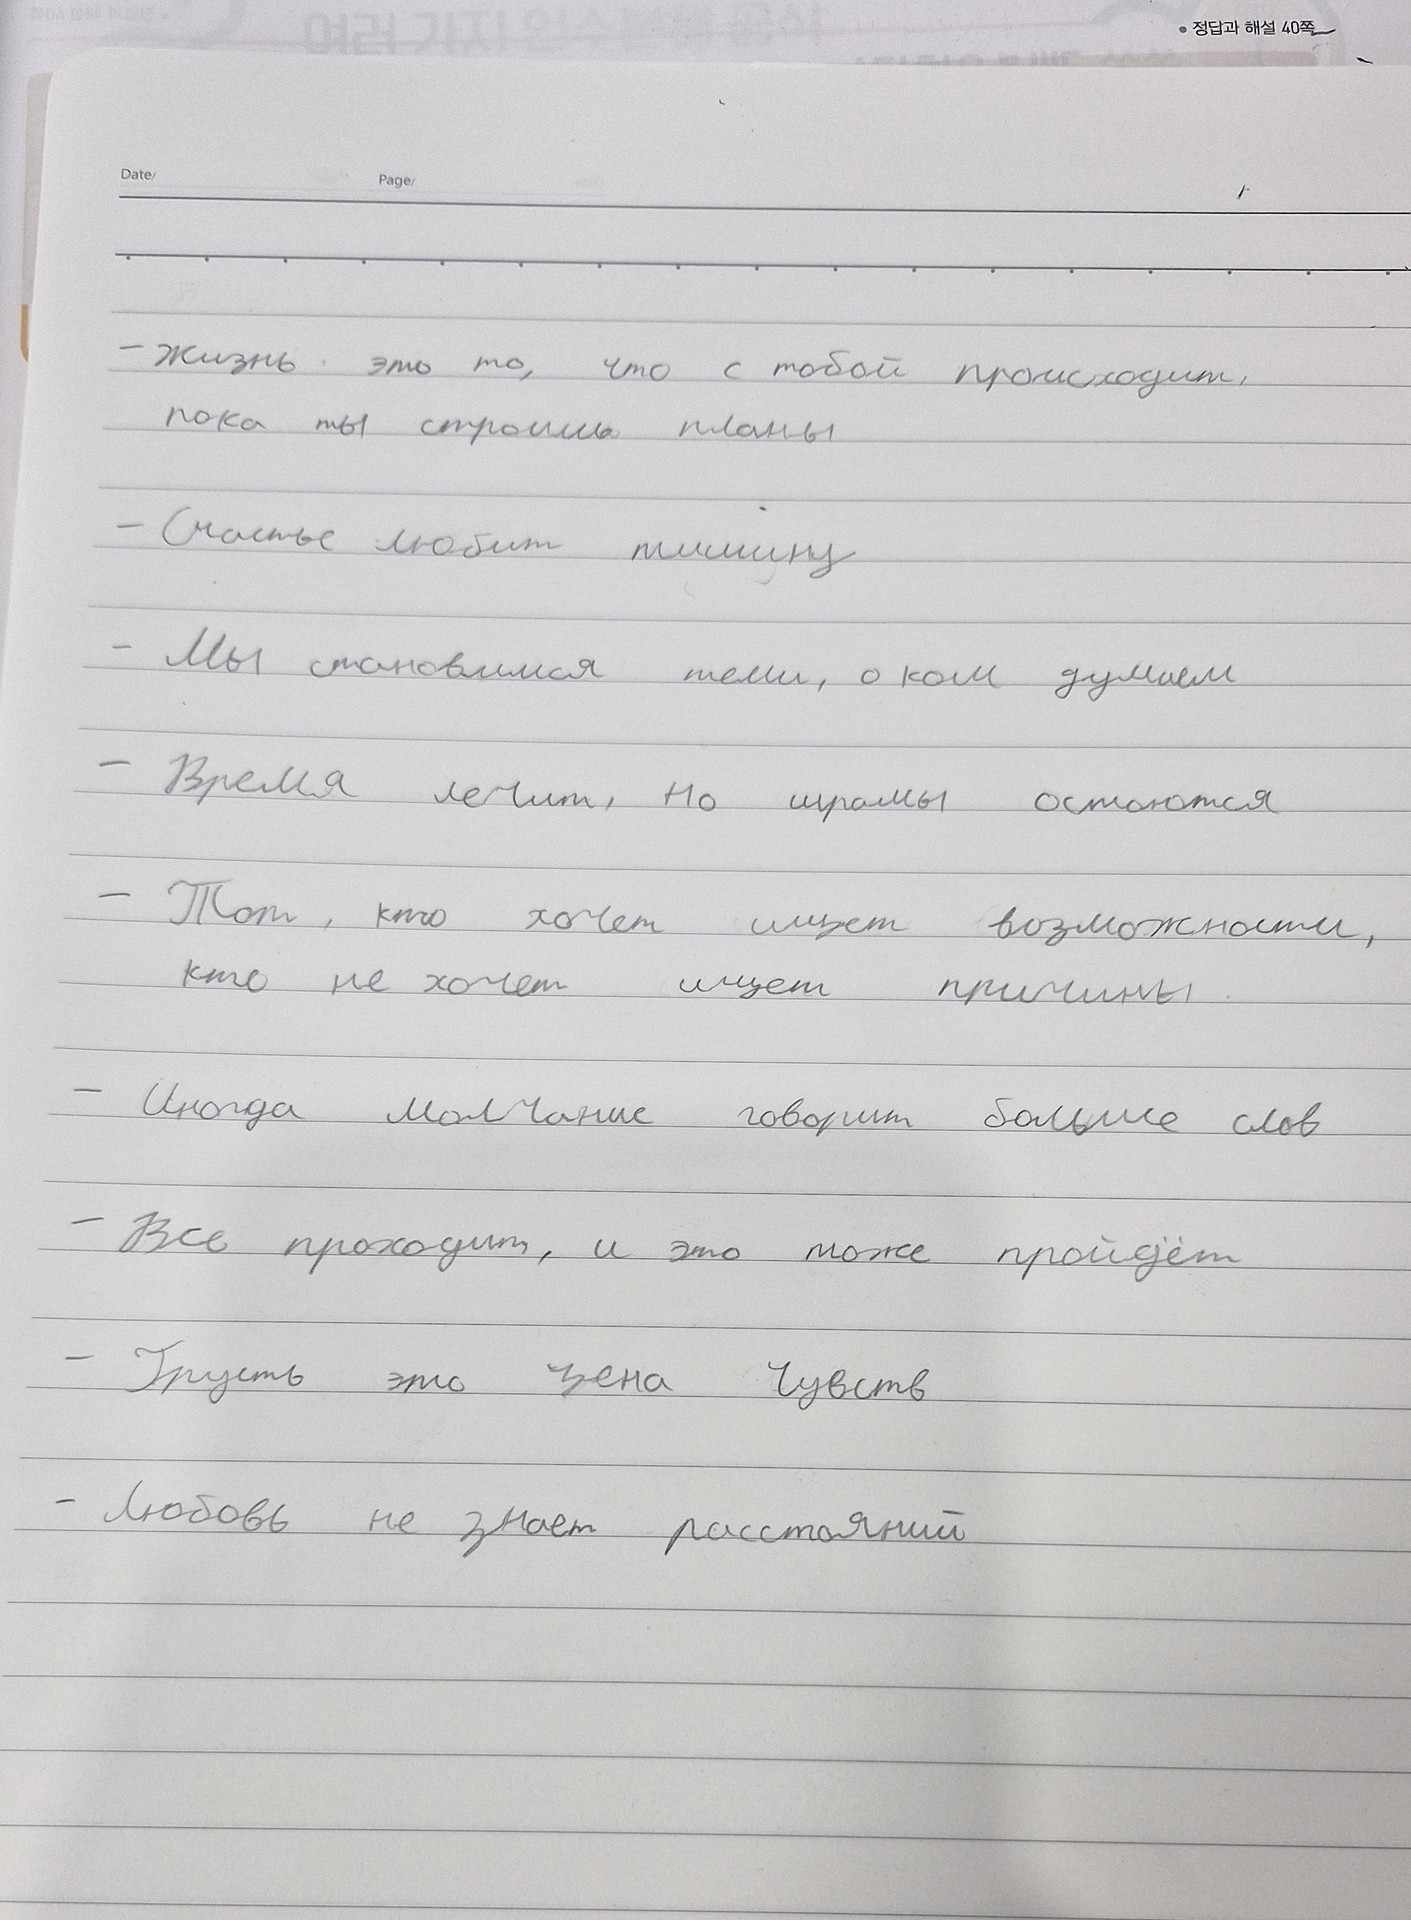 • 정답과 해설 40쪽
Date/ Page/
- Жизнь это то, что с тобой происходит,
пока ты строишь планы
- Счастье любит тишину
- Мы становимся теми, о ком думаем
- Время лечит, но шрамы остаются
- Тот, кто хочет ищет возможности,
кто не хочет ищет причины
- Иногда молчание говорит больше слов
- Все проходит, и это може пройдёт
- Грусть это цена чувств
- Любовь не знает расстояний